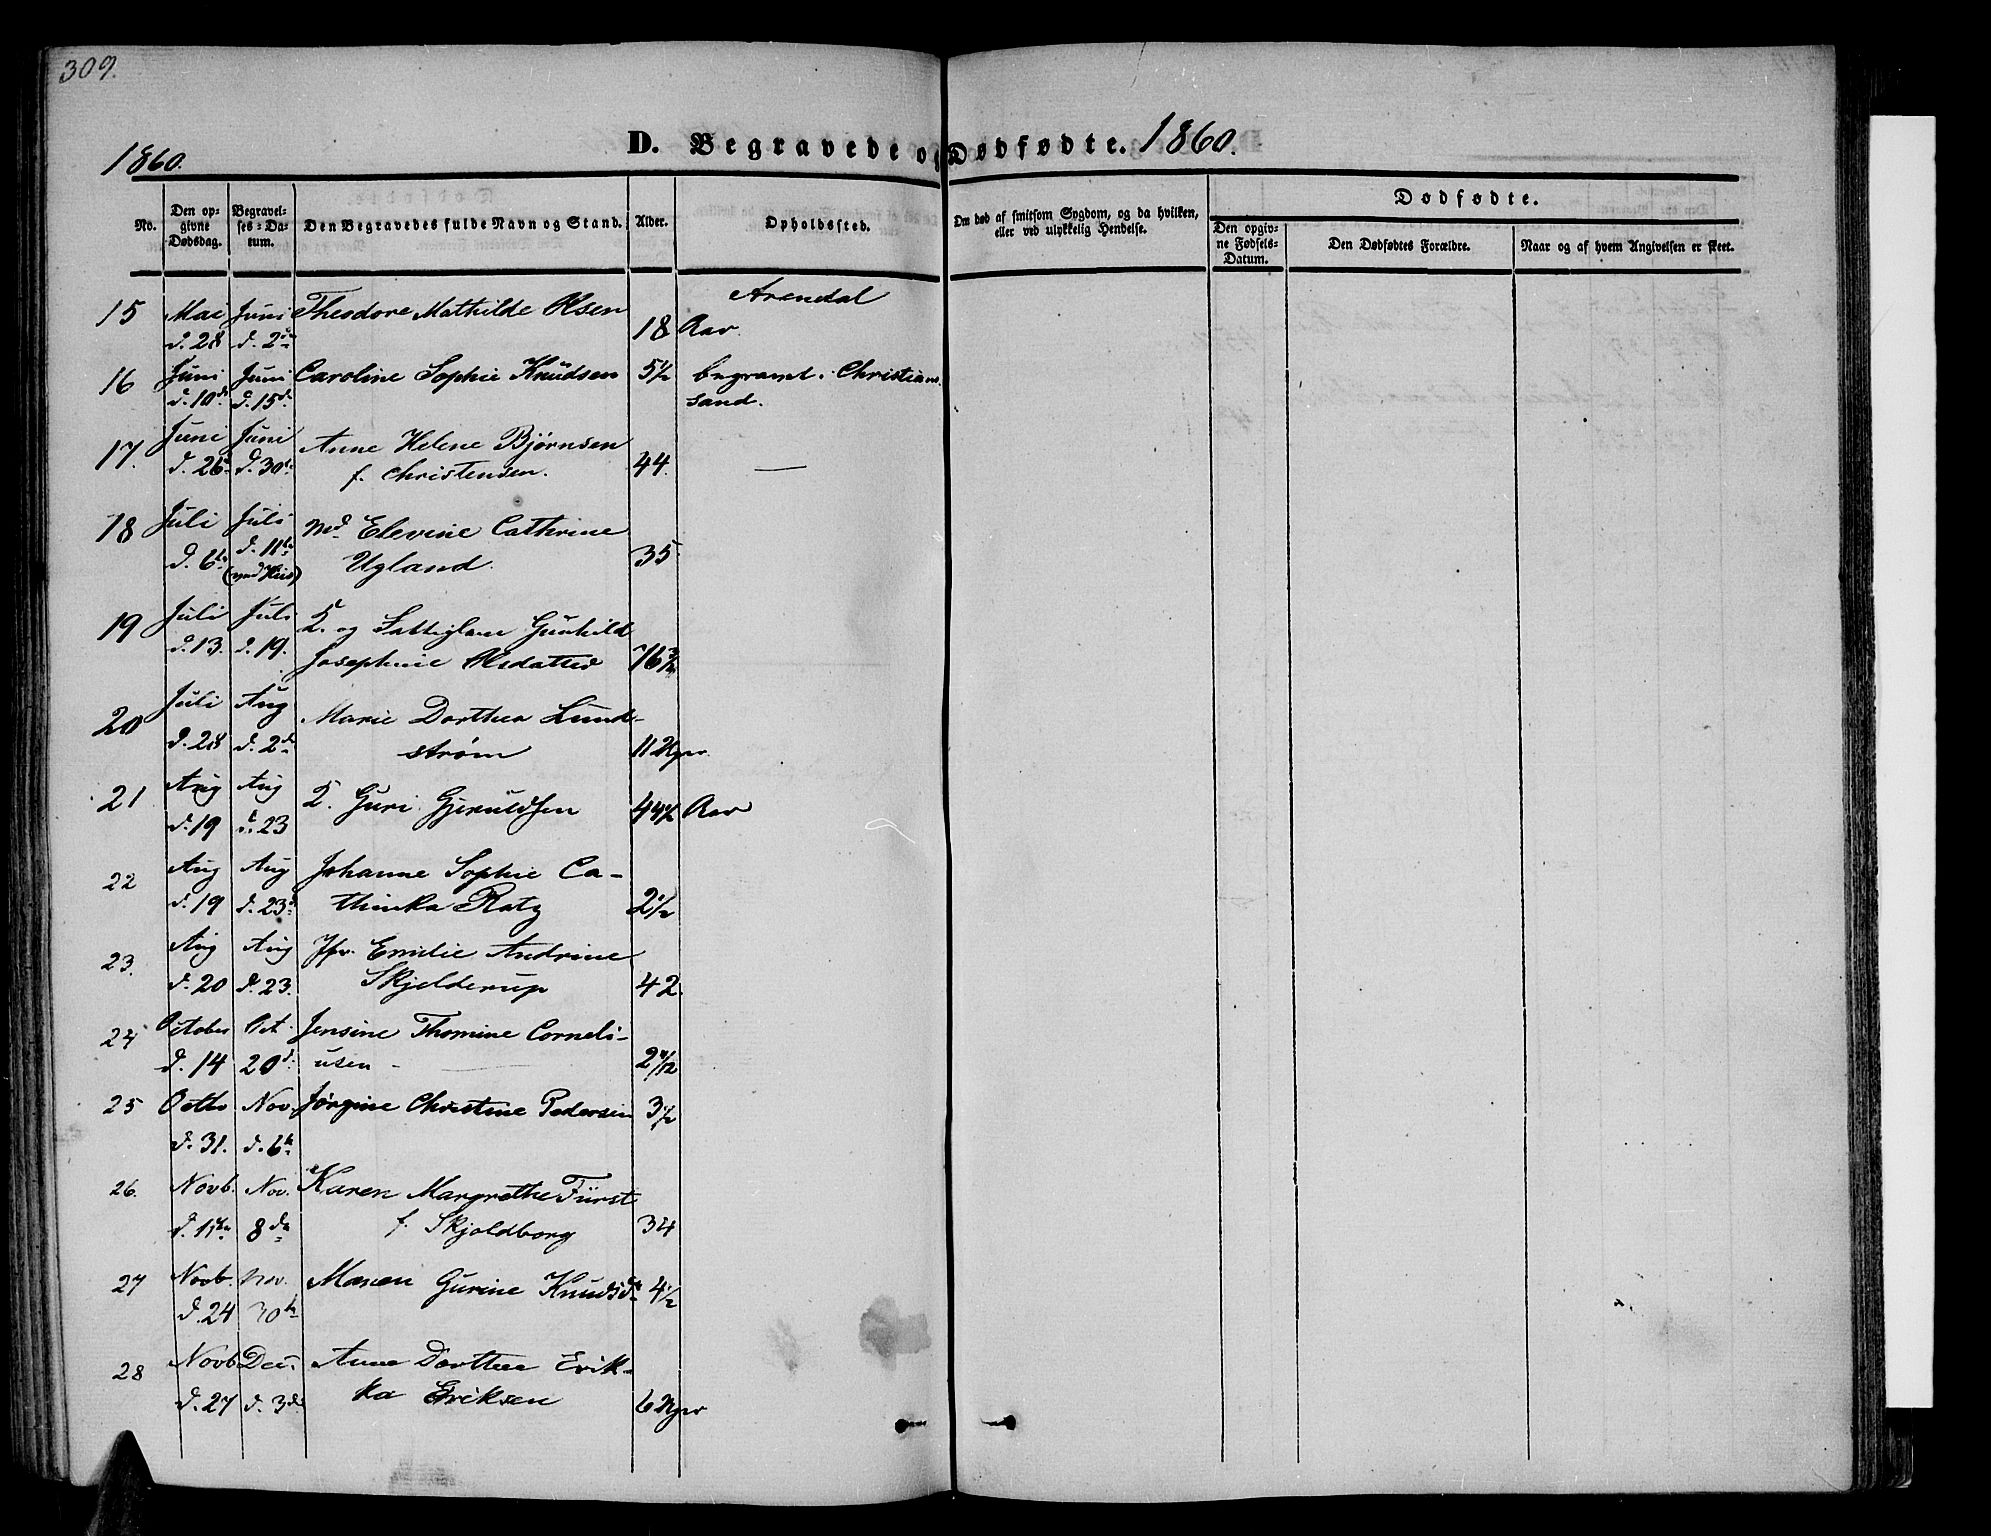 309.
1860.
D. Begravede og Dødfødte. 1860.
No.
Den opgivne Dødsdag.
Begravelses-Datum.
Den Begravedes fulde Navn og Stand.
Alder.
Opholdssted.
Om død af smitsom Sygdom, og da hvilken, eller ved ulykkelig Hendelse.
Dødfødte.
Den opgivne Fødsels-Datum.
Den Dødfødtes Forældre.
Naar og af hvem Angivelsen er skeet.
Arendal
15 Mai Juni Theodore Mathilde Olsen
d. 28 d. 2 18 Aar.
16 Juni Juni Caroline Sophie Knudsen 5½ begravet i Christian
d. 10 d. 15 sand.
17. Juni Juni Anne Helene Bjørnsen
d. 26 d. 30 f. Christensen. 44. —
18 Juli Juli Md Elevine Cathrine
d. 6 d. 11 Ugland. 35
19 Juli Juli og Gunhild
d. 13. d. 19. Josephine Olsdatter 76
20 Juli Aug Marie Dorthea Lund-
d. 28 d. 2 strøm 11 Uger
21 Aug Aug Guri Gjeruldsen 44½ Aar
d. 19 d. 23
22 Aug Aug Johanne Sophie Ca-
d. 19 d. 23 thinka Ratz 2½
23. Aug Aug Jfr. Emilie Andrine
d. 20 d. 23. Skjelderup 42.
24 October Oct Jensine Thomine Corneli-
d. 14 20 d. usen —
25 Octb Nov. Jørgine Christine Pedersen 3½
d. 31. d. 6
26. Novb. Nov. Karen Margrethe Fürst
d. 1 8 f. Skjoldborg 34
27 Novb. Nov. Maren Gurine Knudsd 4½
d. 24 30
28 Novb Dec. Anne Dorthea Erik-
d. 27 d. 3 ka Eriksen 6 Uger